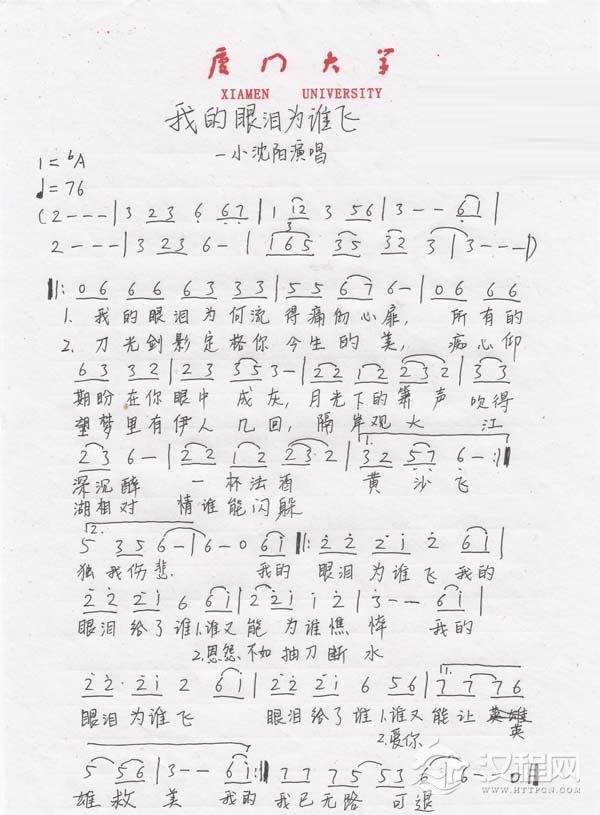 厦门大学
XIAMEN UNIVERSITY
我的眼泪为谁飞
—小沈阳演唱
1=ᵇA
♩=76
(2---|3 23 6 67|1 12 3 56|3--61|
2---|3 23 6-|165 35 32 3|3---|)
‖:06 66 63 33|55 676-|06 66
1. 我的眼泪为何流得痛彻心扉, 所有的
2. 刀光剑影定格你今生的美, 痴心仰
63 32|23 3-|22 12 232|33
期盼在你眼中成灰,月光下的箫声吹得
望梦里有伊人几回,隔岸观火 江
236-|22 12 232|32 576-:‖
1.
深沉醉 一杯浊酒 黄沙飞
湖相对 情谁能闪躲
2.
5 356-|6-0 61‖:22 21 2 61|
独我伤悲 我的眼泪为谁飞我的
22 21 6 61|221 12|3--61|
眼泪给了谁1.谁又能为谁憔悴 我的
2.恩怨不如抽刀断水
22· 21 2 61|22 21 6 56|77 76
1.
眼泪为谁飞 眼泪给了谁1.谁又能让英雄
2.爱你 英
5 56|3--61:‖77 75 53 6|6--0‖
雄救美 我的我已无路可退
汉程网
WWW.HTTPCN.COM